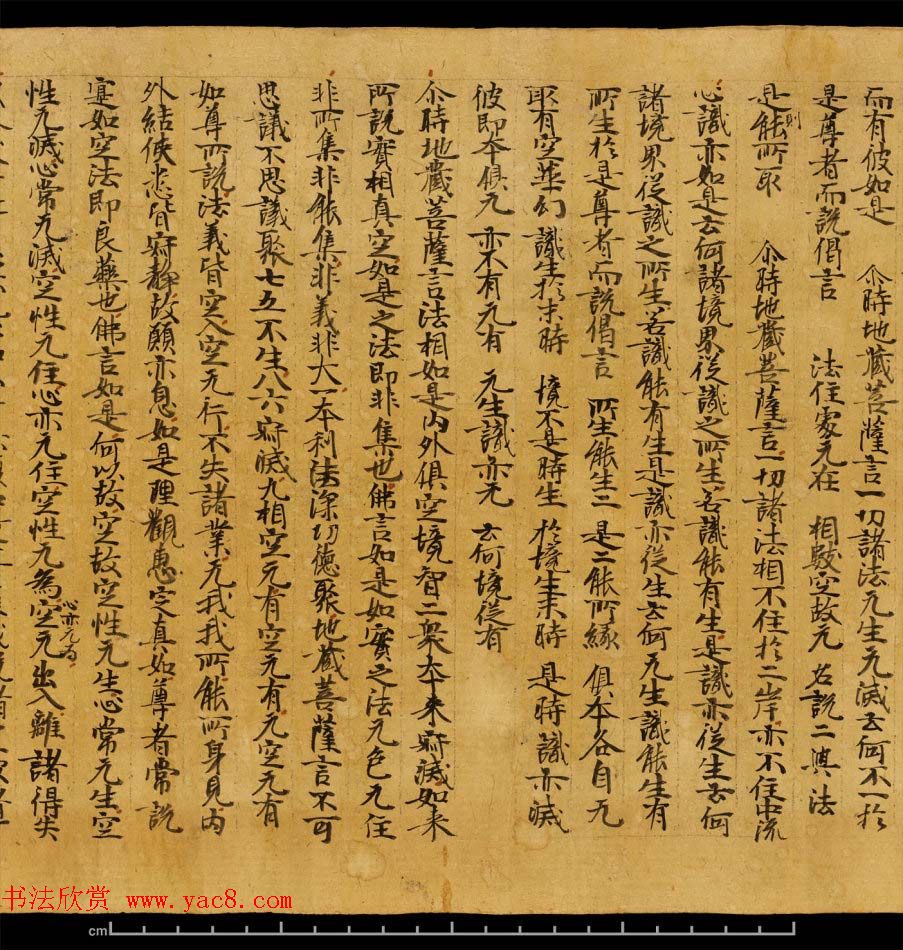 而有彼如是 尒時地藏菩薩言一切諸法无生无滅云何不一於
是尊者而說偈言 法住處无在 相貌空故无 名說二與法
是則能所取 尒時地藏菩薩言一切諸法相不住於二岸亦不住中流
心識亦如是云何諸境界從識之所生若識能有生是識亦從生云何
諸境界從識之所生若識能有生是識亦從生云何无生識能生有
所生於是尊者而說偈言 所生能生二 是二能所緣 俱本各自无
取有空華幻 識生於未時 境不是時生 於境生未時 是時識亦滅
彼即本俱无 亦不有无有 无生識亦无 云何境從有
尒時地藏菩薩言法相如是內外俱空境智二衆本來寂滅如來
所說實相真空如是之法即非集也佛言如是如實之法无色无住
非所集非能集非義非大一本利法深功德聚地藏菩薩言不可
思議不思議聚七五不生八六寂滅九相空无有空无有无空无有
如尊所說法義皆空入空无行不失諸業无我我所能所身見內
外結使悉皆寂靜故願亦息如是理觀惠定真如尊者常說
寔如空法即良藥也佛言如是何以故空故空性无生心常无生空
性无滅心常无滅空性无住心亦无住空性无為心亦无為空无出入離諸得失
书法欣赏 www.yac8.com
cm